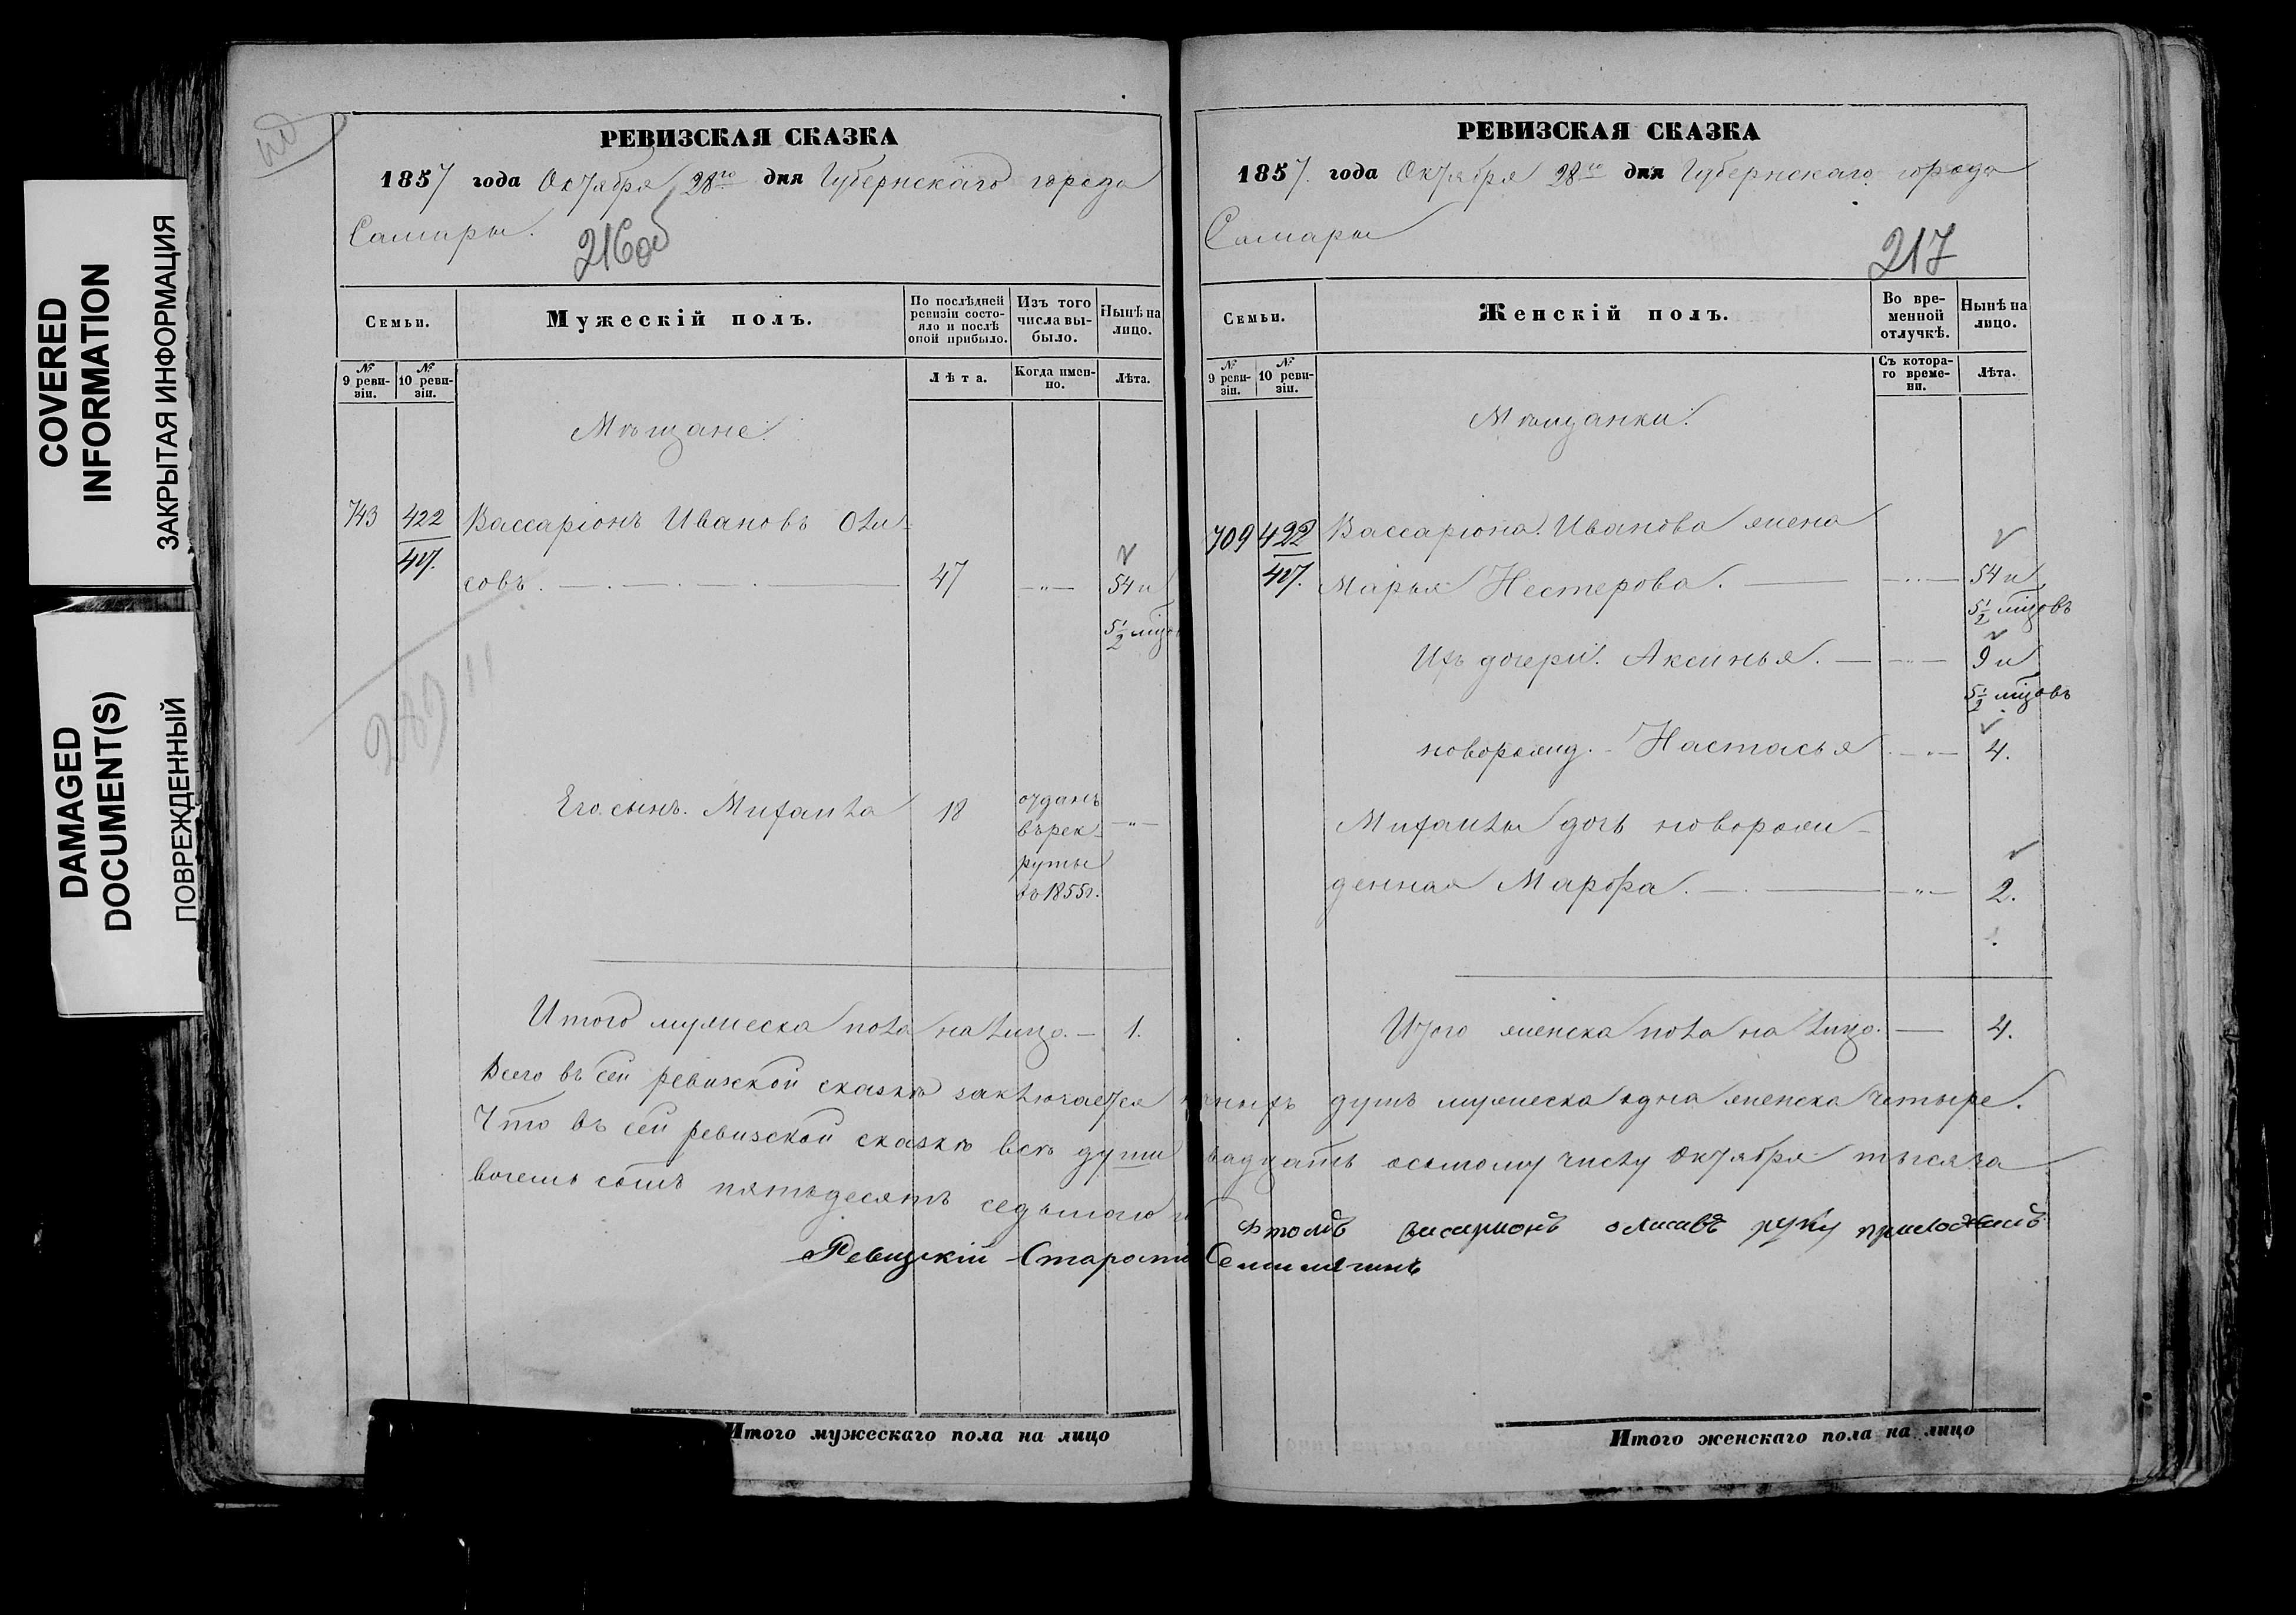 COVERED
INFORMATION
ЗАКРЫТАЯ ИНФОРМАЦИЯ
DAMAGED
DOCUMENT(S)
ПОВРЕЖДЕННЫЙ
РЕВИЗСКАЯ СКАЗКА
1857 года Октября 28го дня Губернскаго города
Самары.
216об
Семьи.
Мужескій полъ.
По послѣдней ревизіи состояло и послѣ оной прибыло.
Изъ того числа выбыло.
Нынѣ на лицо.
№ 9 ревизіи.
№ 10 ревизіи.
Лѣта.
Когда именно.
Лѣта.
Мѣщане.
743 422 Вассаріонъ Ивановъ Оли
417.
совъ. 47 — „ — 54 и
5 1/2 мѣцовъ
Его сынъ. Михаила 18 отданъ — „ —
въ рек-
руты
въ 1855г.
Итого мужеска пола на лицо. — 1.
Всего въ сей ревизской сказкѣ заключается
Что въ сей ревизской сказкѣ всѣ души
восемь сотъ пятьдесятъ седьмого
Ревизскій Старости
Итого мужескаго пола на лицо
РЕВИЗСКАЯ СКАЗКА
1857. года Октября 28го дня Губернскаго города
Самары
217
Семьи.
Женскій полъ.
Во временной отлучкѣ.
Нынѣ на лицо.
№ 9 ревизіи.
№ 10 ревизіи.
Съ котораго времени.
Лѣта.
Мѣщанки.
709 422 Вассаріона Иванова жена
417. Марья Нестерова. — „ — 54 и
5 1/2 мѣцовъ
Ихъ дочери. Аксинья. — „ — 9 и
5 1/2 мѣцовъ
новорожд. - Настасья — „ — 4.
Михаилы дочь новорож-
денная Марфа. — „ — 2.
Итого женска пола на лицо. — 4.
душъ мужеска одна женска четыре.
осьмому числу Октября тысяча
руку приложилъ
Итого женскаго пола на лицо